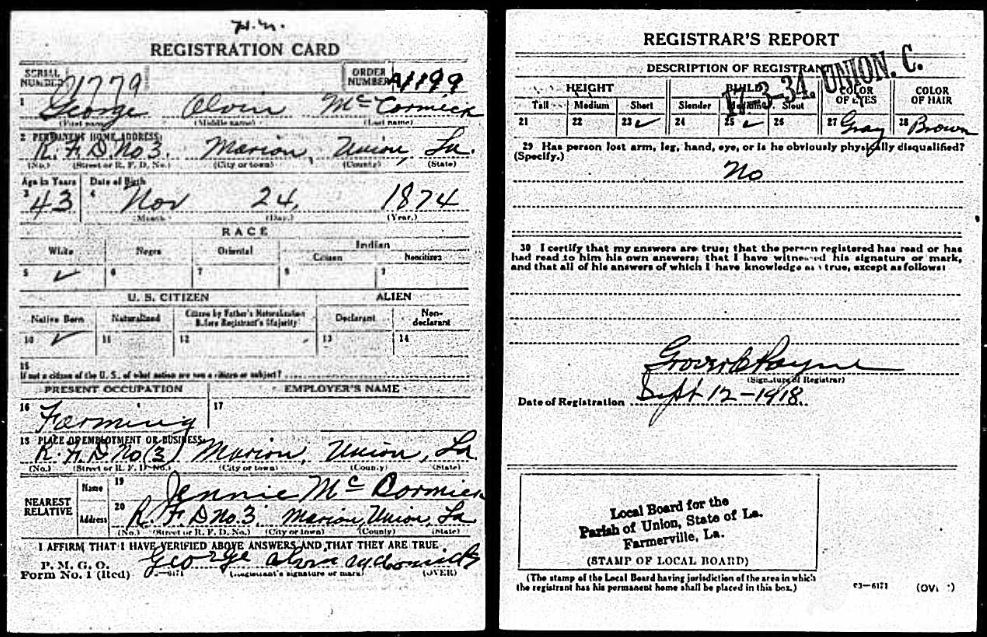 H.M.
REGISTRATION CARD
SERIAL NUMBER 1779 ORDER NUMBER A1199
1 George Alvin McCormick
(First name) (Middle name) (Last name)
2 PERMANENT HOME ADDRESS:
R. F. D. No 3. Marion, Union, La.
(No.) (Street or R. F. D. No.) (City or town) (County) (State)
Age in Years Date of Birth
3 43 4 Nov 24, 1874
(Month.) (Day.) (Year.)
RACE
White Negro Oriental Indian
Citizen Noncitizen
5 ✓ 6 7 8 9
U. S. CITIZEN ALIEN
Native Born Naturalized Citizen by Father's Naturalization Before Registrant's Majority Declarant Non-declarant
10 ✓ 11 12 13 14
15
If not a citizen of the U. S., of what nation are you a citizen or subject?
PRESENT OCCUPATION EMPLOYER'S NAME
16 Farming 17
18 PLACE OF EMPLOYMENT OR BUSINESS:
R. F. D No (3) Marion, Union, La
(No.) (Street or R. F. D. No.) (City or town) (County) (State)
NEAREST RELATIVE Name 19 Jennie McCormick
Address 20 R. F. D No. 3 Marion, Union, La
(No.) (Street or R. F. D. No.) (City or town) (County) (State)
I AFFIRM THAT I HAVE VERIFIED ABOVE ANSWERS AND THAT THEY ARE TRUE
P. M. G. O.
Form No. 1 (Red) 3—6171 George Alvin McCormick
(Registrant's signature or mark) (OVER)
REGISTRAR'S REPORT
17-3-34. UNION. C.
DESCRIPTION OF REGISTRANT
HEIGHT BUILD COLOR OF EYES COLOR OF HAIR
Tall Medium Short Slender Medium Stout
21 22 23 ✓ 24 25 ✓ 26 27 Gray 28 Brown
29 Has person lost arm, leg, hand, eye, or is he obviously physically disqualified?
(Specify.)
No
30 I certify that my answers are true; that the person registered has read or has
had read to him his own answers; that I have witnessed his signature or mark,
and that all of his answers of which I have knowledge are true, except as follows:
Grover C Payne
(Signature of Registrar)
Date of Registration Sept 12-1918
Local Board for the
Parish of Union, State of La.
Farmerville, La.
(STAMP OF LOCAL BOARD)
(The stamp of the Local Board having jurisdiction of the area in which
the registrant has his permanent home shall be placed in this box.)
03—6171 (OVER)